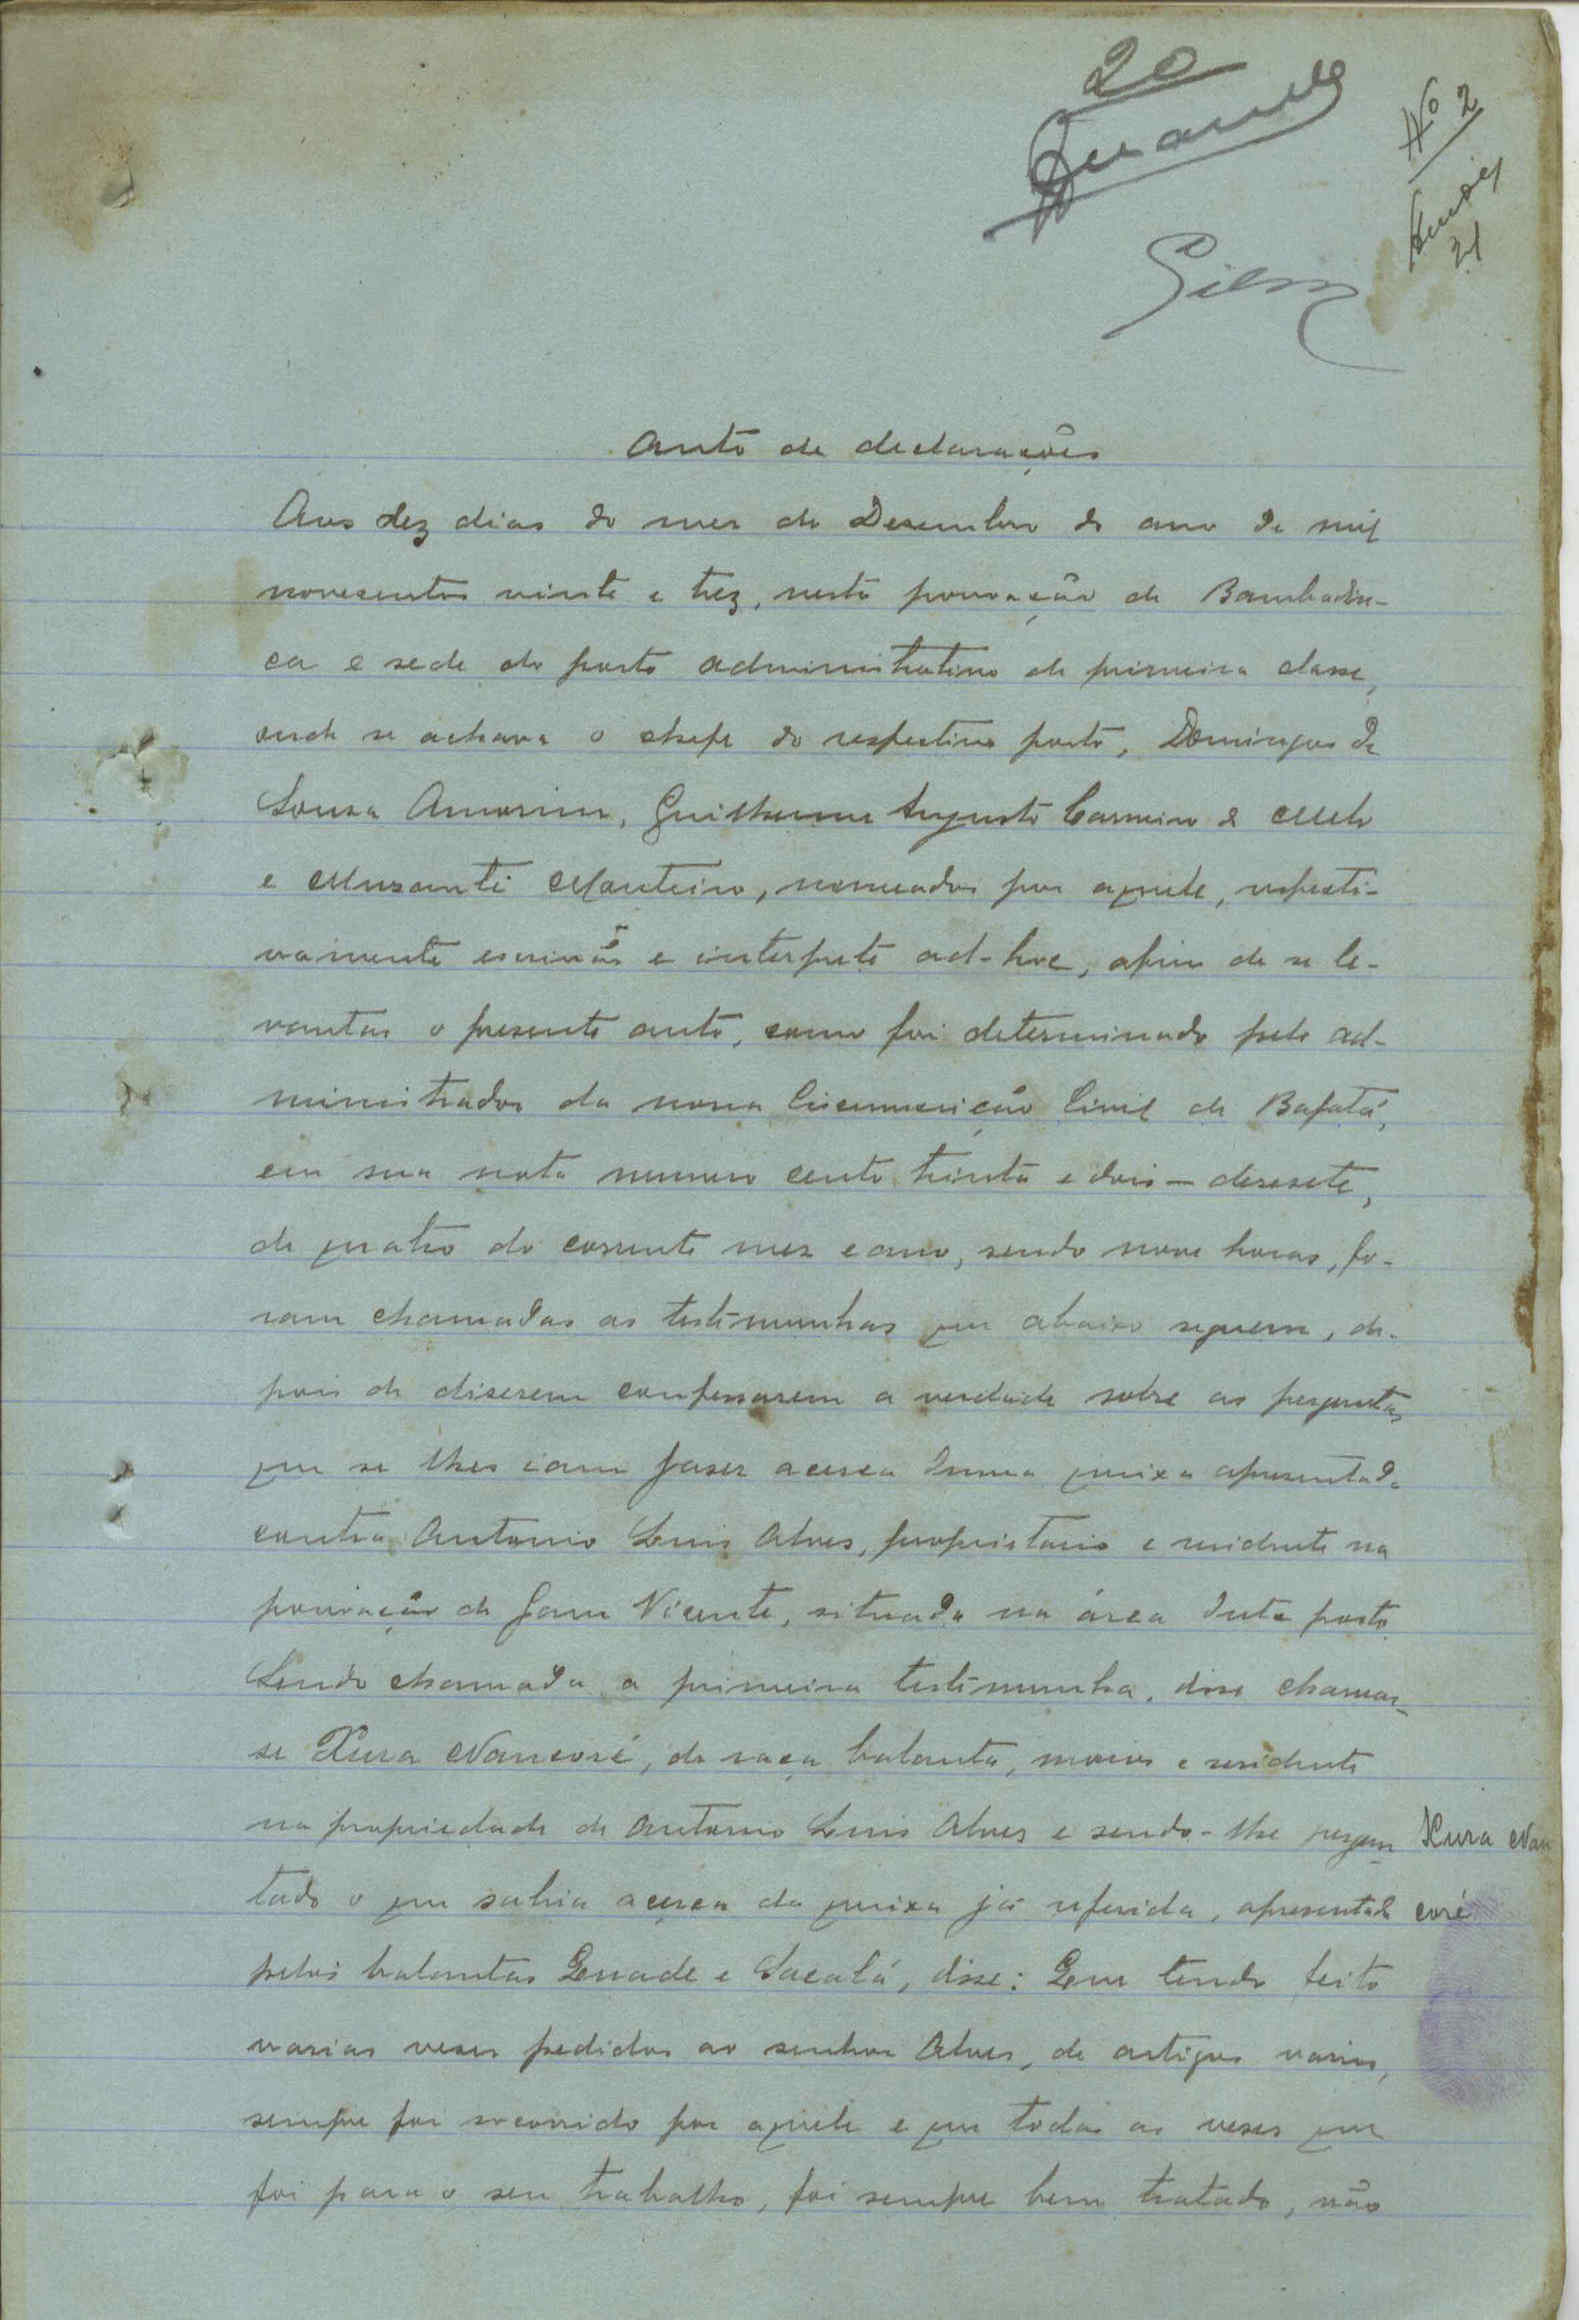 20
Nº 2
21
Auto de declarações
Aos dez dias do mez de Desembro do ano de mil
novesentos vinte e trez, nesta povoação de Bambadin-
ca e sede do posto administrativo de primeira classe,
onde se achava o chefe do respectivo posto, Domingos de
Sousa Amorim, Guilherme Augusto Carneiro e Melo
e Musanti Monteiro, nomeados por aquele, respecti-
vamente escrivão e interpete ad-hoc, afim de se le-
vantar o presente auto, como foi determinado pelo ad-
ministrador da nona Circunscrição Civil de Bafatá,
em sua nota numero cento trinta e dois - desesete,
de quatro do corrente mez e ano, sendo nove horas, fo-
ram chamadas as testimunhas que abaixo seguem, de-
pois de diserem confessarem a verdade sobre as perguntas
que se lhes iam faser acerca duma queixa apresentada
contra Antonio Luis Alves, proprietario e residente na
povoação de Gam Vicente, situada na área deste posto
Sendo chamada a primeira testimunha, disse chamar-
se Xura Nancoré, de raça balanta, maior e residente
na propriedade de Antonio Luis Alves e sendo-lhe pergun Xura Nan
tado o que sabia acerca da queixa já referida, apresentada coré
pelos balantas Quade e Sacalá, disse: Que tendo feito
varias veses pedidos ao senhor Alves, de artigos varios,
sempre foi socorrido por aquele e que todas as veses que
foi para o seu trabalho, foi sempre bem tratado, não